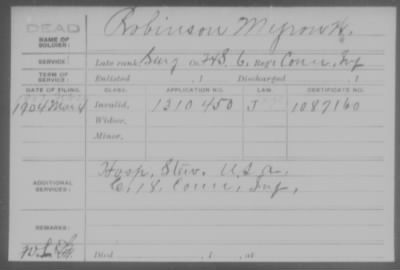 DEAD
NAME OF SOLDIER: Robinson
SERVICE: Late rank Surg Co. F&S, 6, Reg't Conn. Inf
TERM OF SERVICE: Enlisted , 1 Discharged , 1
DATE OF FILING. CLASS. APPLICATION NO. LAW. CERTIFICATE NO.
1904 Invalid, 1310450 J 1087160
Widow,
Minor,
ADDITIONAL SERVICES: Hosp. Stew. U.S.A.
18, Conn. Inf.
REMARKS:
Died , 1 , at